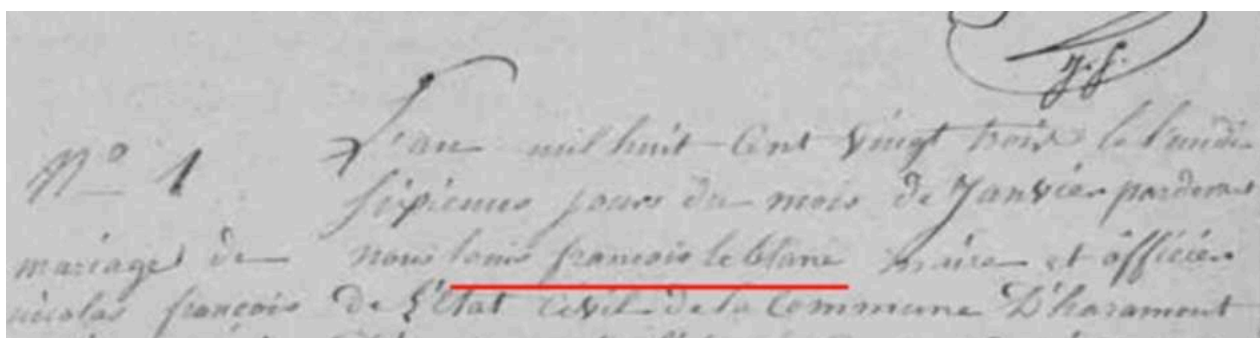 N° 1
mariage de
nicolas françois
L'an mil huit Cent Vingt trois le lundi
jours du mois de Janvier pardevant
nous louis francois le blanc maire et officier
De L'Etat Civil de la Commune D'haramont